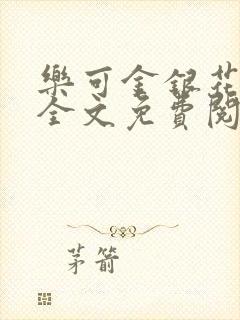 樂可金銀花
全文免費閱
茅箭